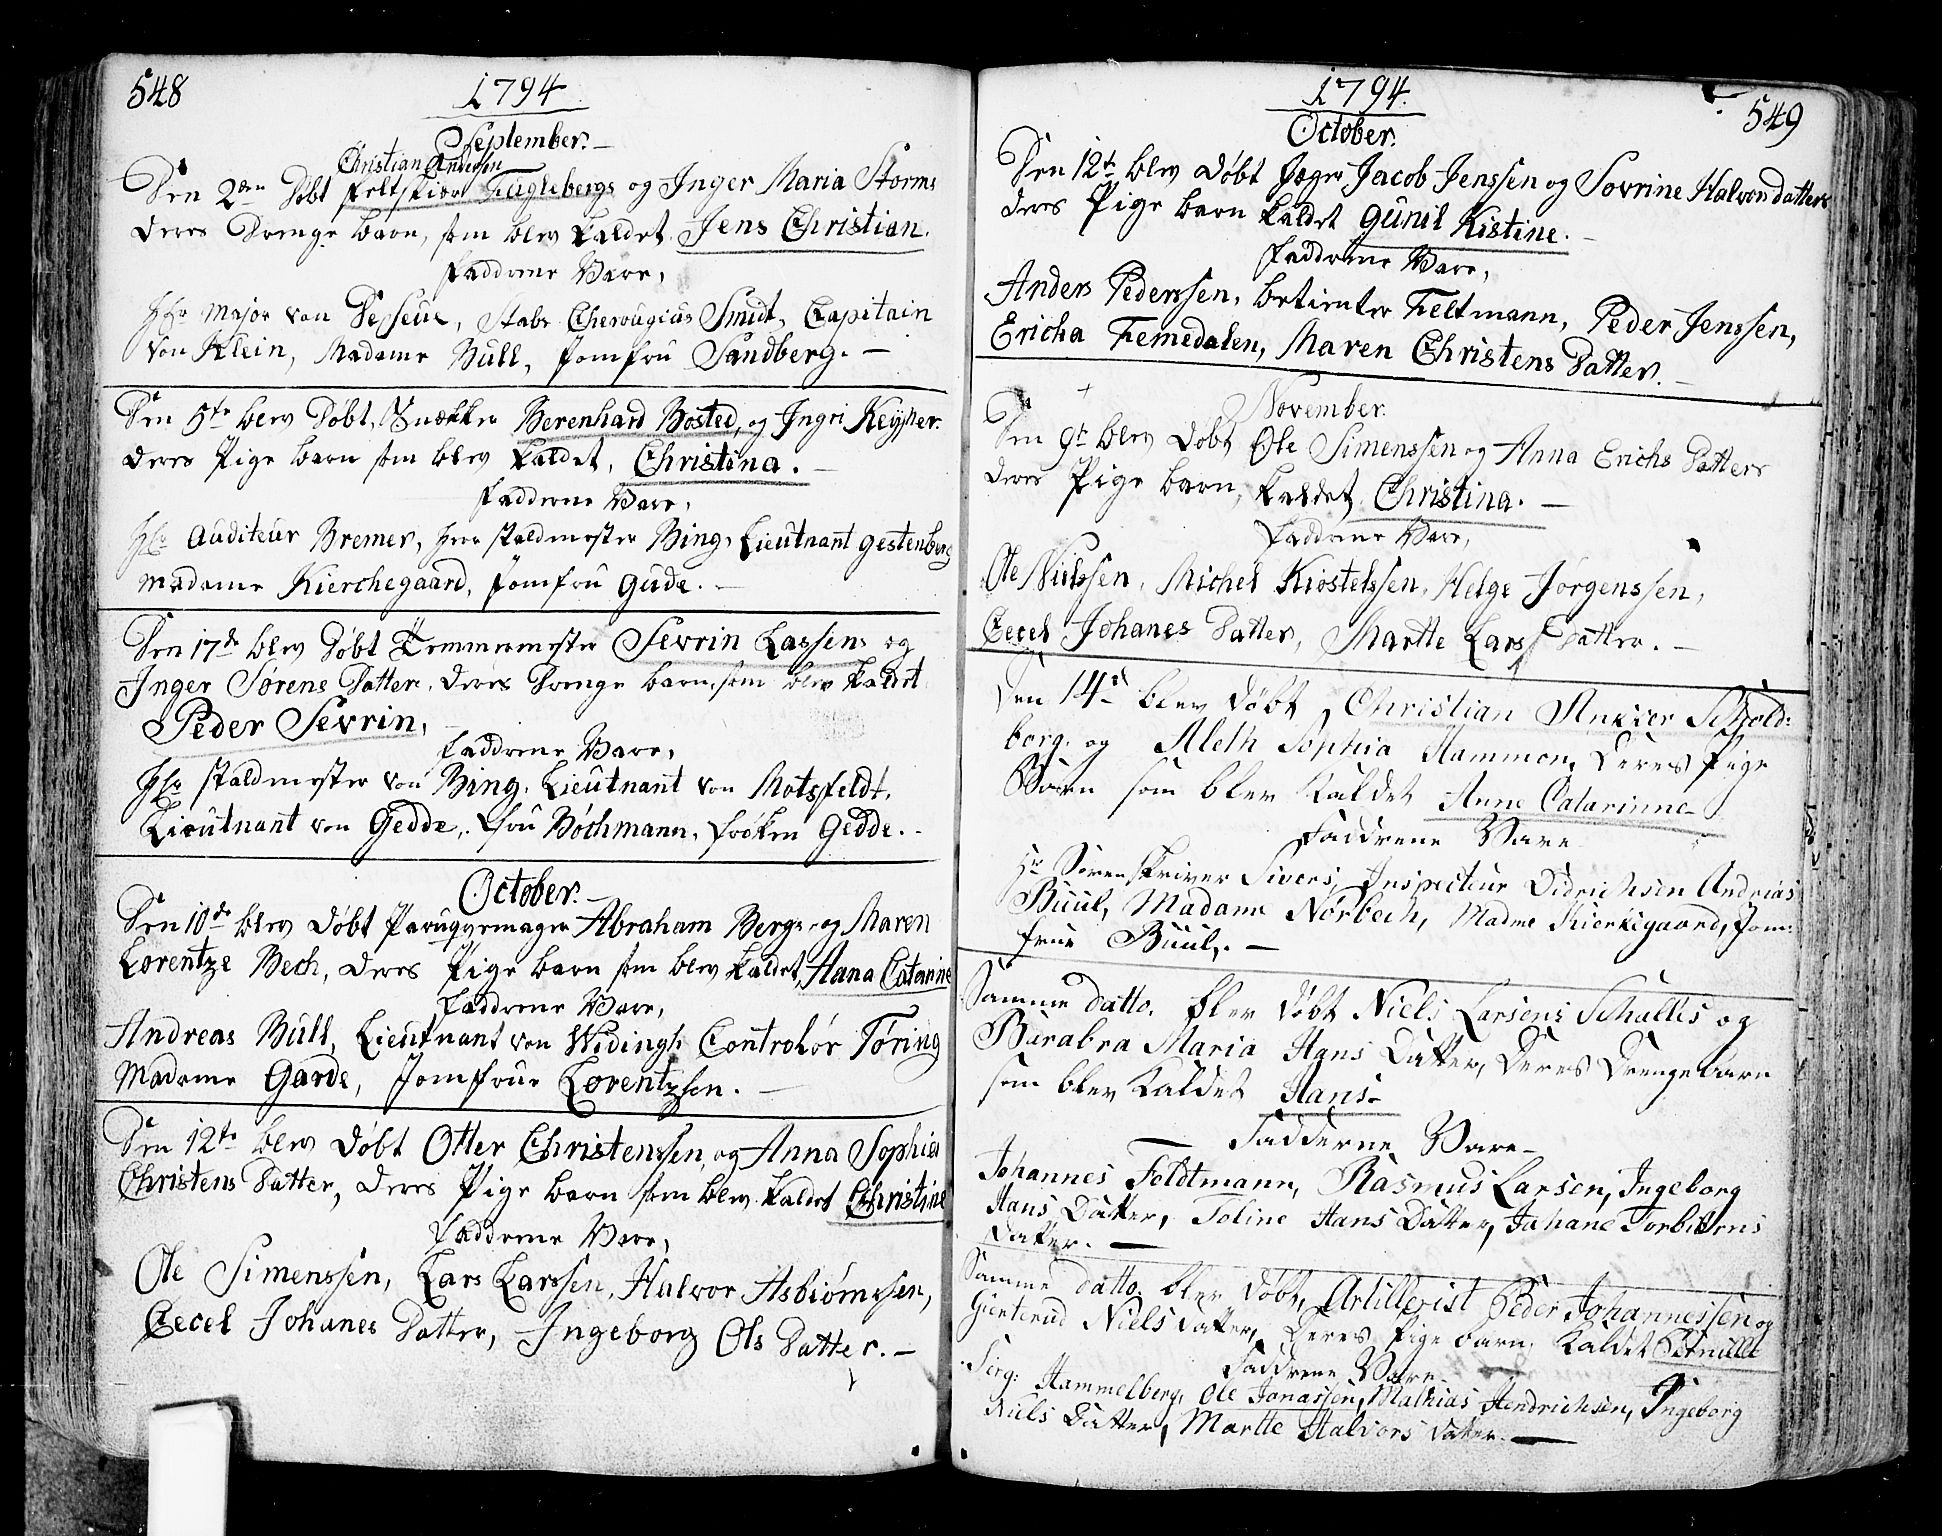 548
1794
September.
Christian Andersen
Den 2den Døbt feltskiær Fuglebergs og Inger Maria Storms
deres Drenge barn, som blev kaldet Jens Christian.
fadderne Vare,
Hr Major von Desseue, Stabs Cherougius Smidt, Capitain
von Klein, Madame Bull, Jomfru Sandberg.
Den 5te blev Døbt, Snækker Berenhard Bosted, og Ingri Keyser
deres Pige barn som blev kaldet, Christina.
fadderne Vare,
Hr Auditeur Bremer, herr staldmester Bing, Lieutnant gestenberg
madame Kierchegaard, Jomfru Gude.
Den 17de blev Døbt Temmermester Sevrin Lassens og
Inger Sørens Datter, deres Drenge barn, som blev kaldet
Peder Sevrin,
fadderne Vare,
Hr staldmester von Bing, Lieutnant von Motsfeldt,
Lieutnant von Gedde, fru Bøchmann, frøken Gedde.
October.
Den 10de blev Døbt Paruqvemager Abraham Berg, og Maren
Lorentze Bech, deres Pige barn som blev kaldet, Hana Catarine
fadderne Vare,
Andreas Bull, Lieutnant von Widingh Controlør Tøring
Madame Garde, Jomfrue Lorentzsen.
Den 12te blev Døbt Otter Christenssen, og Anna Sophia
Christens Datter, deres Pige barn som blev kaldet Christine
fadderne Vare,
Ole Simenssen, Lars Larssen, Halvor Asbiørnssen,
Cecel Johanes Datter, Ingeborg Ols Datter.
549
1794.
October.
Den 12te blev Døbt Jæger Jacob Jenssen og Sovrine Halvordatters
deres Pige barn kaldet Gunil Kistine.
fadderne Vare,
Anders Pederssen, betienter Feltmann, Peder Jenssen,
Ericha Femedalen, Maren Christens Datter.
November.
Den 9te blev Døbt Ole Simenssen og Anna Erichs Datters
deres Pige barn, kaldet Christina.
fadderne Vare,
Ole Nielssen, Michel Kiostelssen, Helge Jørgenssen,
Cecel Johanes Datter, Martte Lars Datter.
Den 14de blev Døbt Christian Ancker Schiold:
borg. og Aleth Sophia Hammon, Deres Pige
Barn som blev kaldet Anne Catarinne
Faddrene Vare
Hr Sorenskriver Sivers, Inspecteur Didrichsen Andrias
Buul, Madame Nørbech, Madme Kierkigaard, Jom:
frue Buul.
Samme datto. blev Døbt Niels Larsens Schultis og
Barabra Maria Hans Datter, Deres Drengebarn
som blev kaldet Hans
Fadderne Vare
Johannes Feldtmann, Rasmus Larsen, Ingeborg
Hans Datter, Toline Hans Datter, Johane Torbiørns
Datter.
Samme datto. blev Døbt, Artillerist Peder Johannessen og
Gierterud Niels datter, Deres Pige barn kaldet Pernille
Faddrene Vare
Serg: Hammelberg, Ole Jonassen, Mathias Hendrichsen, Ingeborg
Niels Datter, Martte Halvors datter.